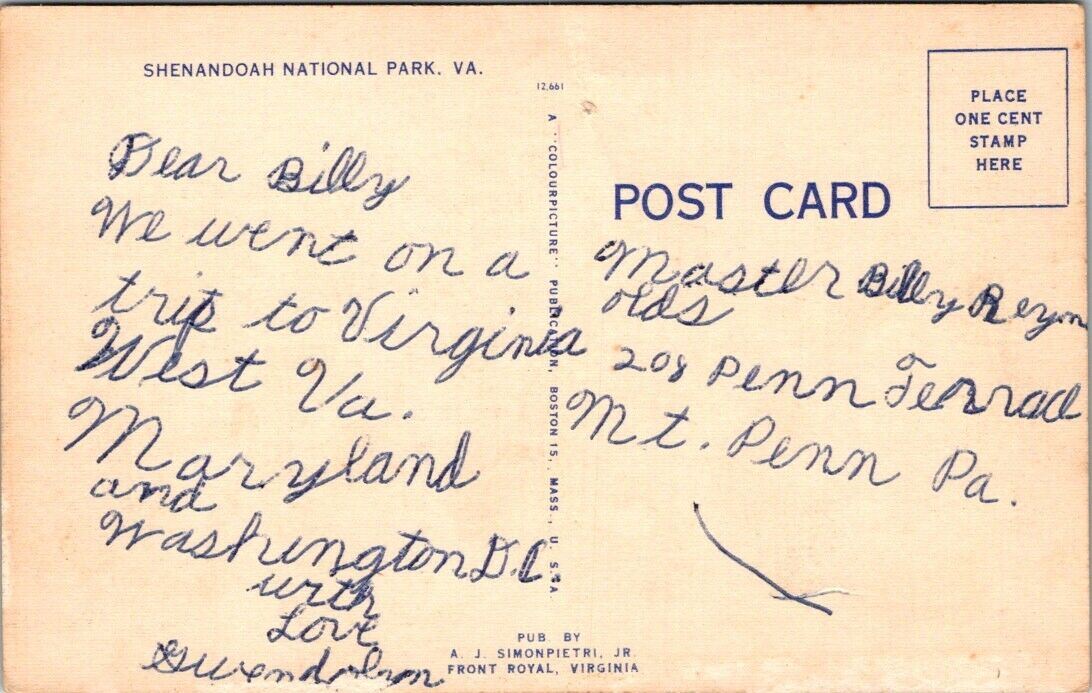 SHENANDOAH NATIONAL PARK, VA.
12,661
Dear Billy
We went on a
trip to Virginia
West Va.
Maryland
and
Washington D.C.
with
Love
Gwendolyn
A "COLOURPICTURE" PUBLICATION, BOSTON 15, MASS., U. S. A.
PUB. BY
A. J. SIMONPIETRI, JR.
FRONT ROYAL, VIRGINIA
PLACE
ONE CENT
STAMP
HERE
POST CARD
Master Billy Reyn
olds
208 Penn Terrace
Mt. Penn Pa.